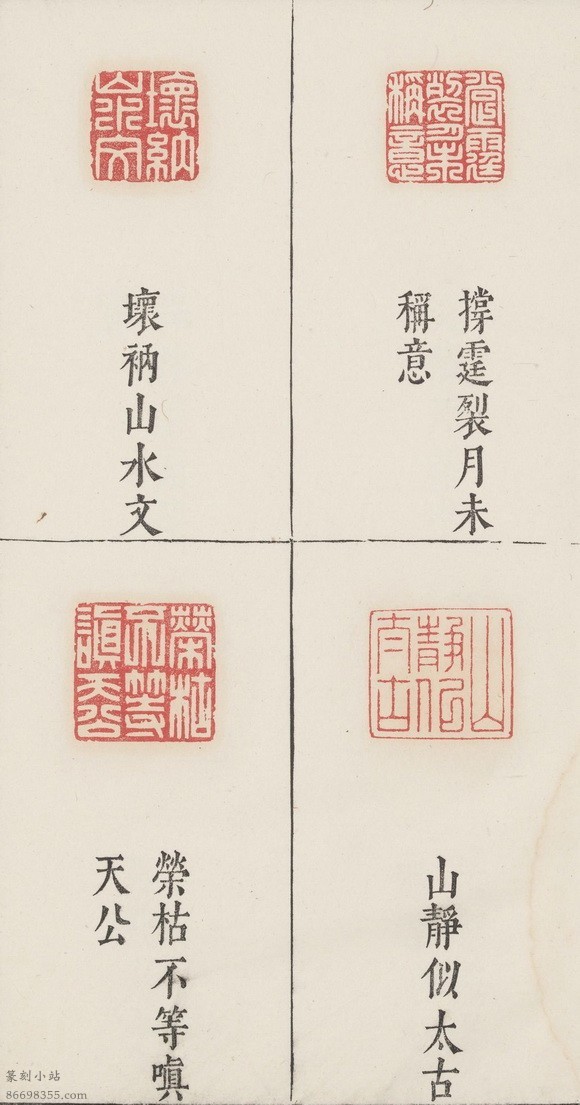 撐霆裂月未
稱意
壞衲山水文
山靜似太古
榮枯不等嗔
天公
篆刻小站
86698355.com